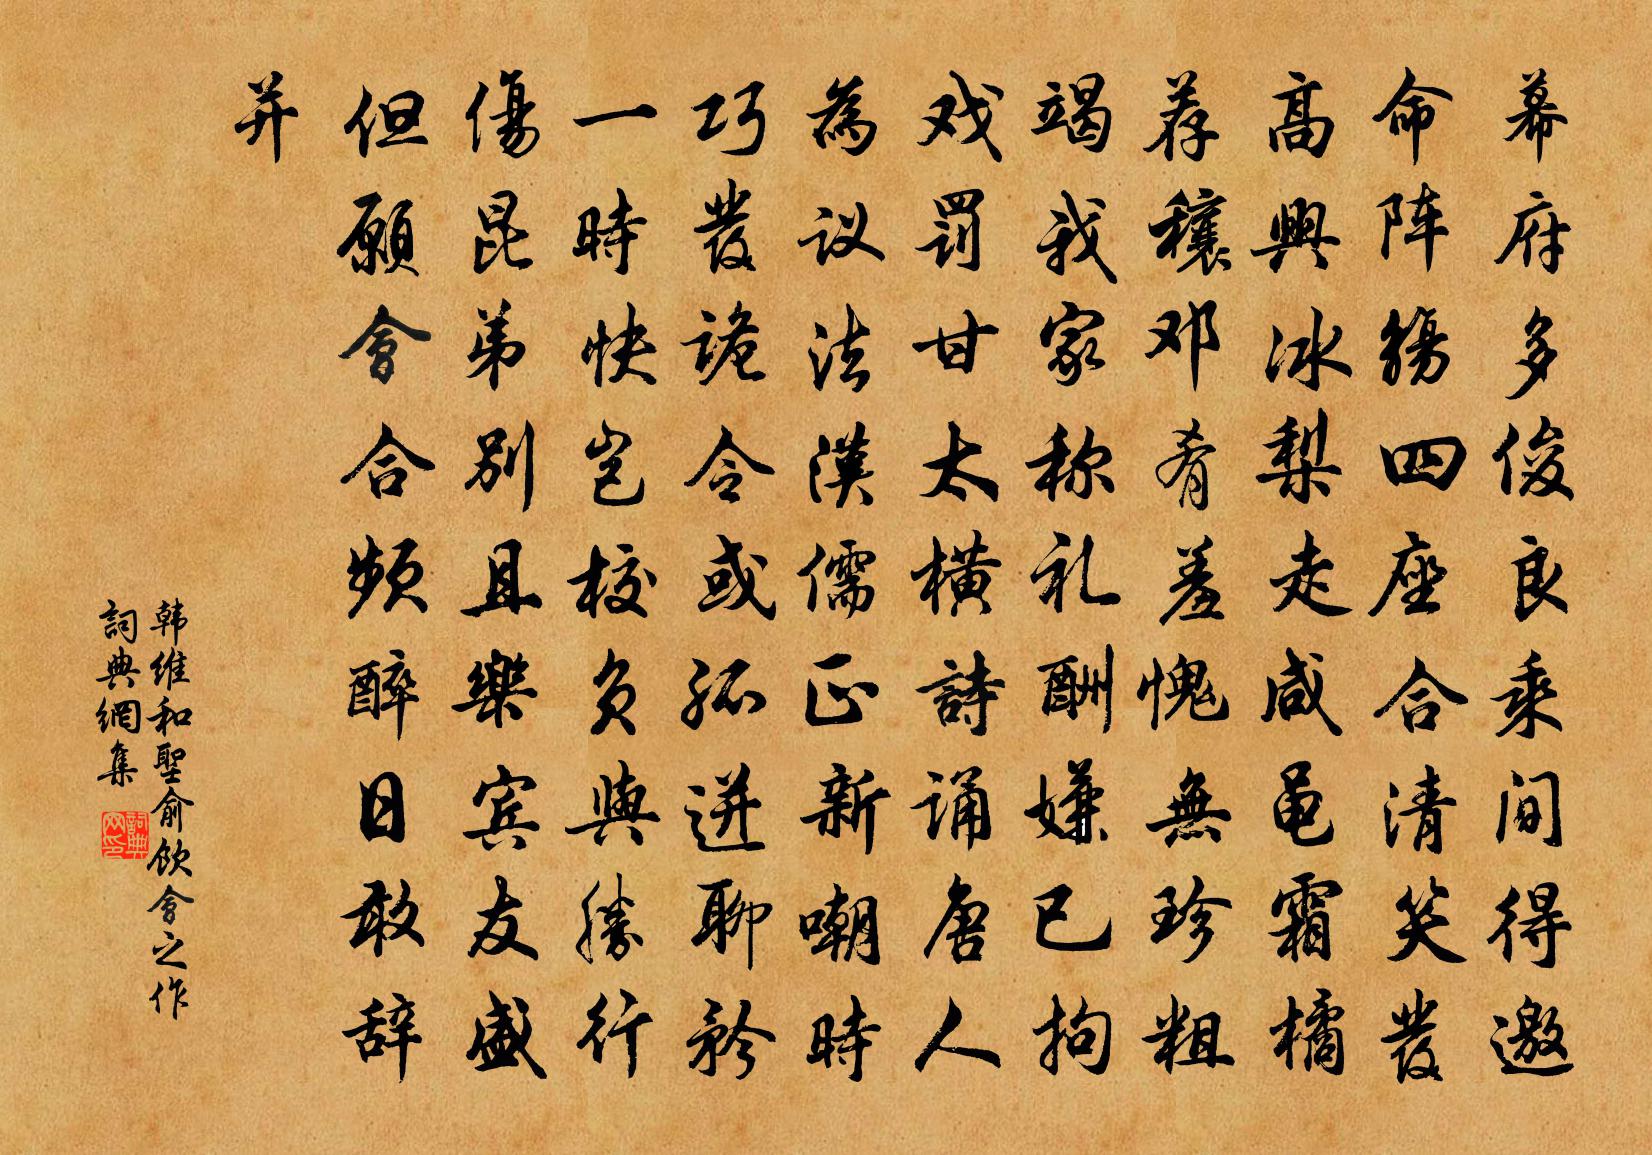 幕府多俊良乘间得邀
命阵觴四座合清笑發
高興冰梨走咸黽霜橘
荐穰邓肴羞愧無珍粗
竭我家称礼酬嫌已拘
戏罰甘太横詩誦唐人
為议法漢儒正新嘲時
巧發詭令或孤迸聊矜
一時快岂校负與勝行
傷昆弟别且樂宾友盛
但願會合频醉日敢辞
并
韩维和聖俞飲會之作
詞典網集